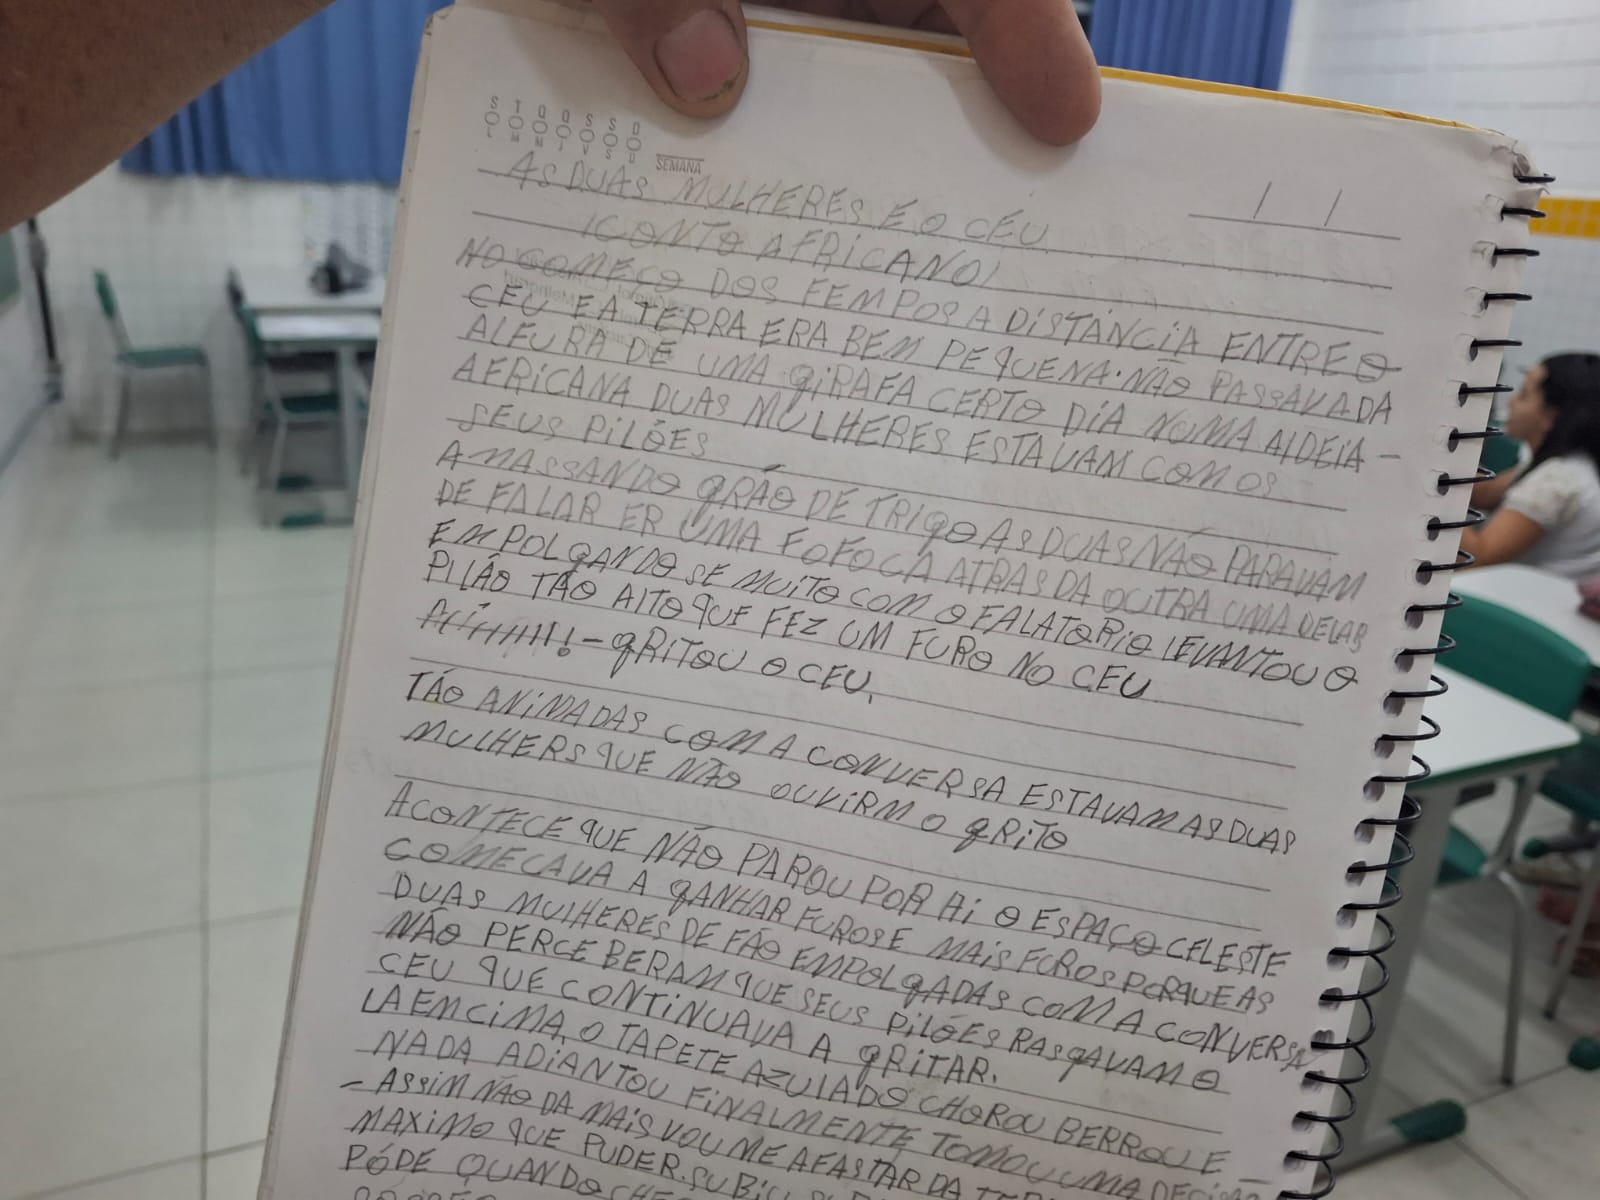 S T Q Q S S D
SEMANA
AS DUAS MULHERES E O CÉU
(CONTO AFRICANO)
NO COMEÇO DOS FEMPOS A DISTÂNCIA ENTRE O
CÉU E A TERRA ERA BEM PEQUENA. NÃO PASSAVA DA
ALFURA DE UMA GIRAFA CERTO DIA NUMA ALDEIA -
AFRICANA DUAS MULHERES ESTAVAM COM OS
SEUS PILÕES
AMASSANDO GRÃO DE TRIGO AS DUAS NÃO PARAVAM
DE FALAR ER UMA FOFOCA ATRAS DA OUTRA UMA DELAS
EMPOLGANDO SE MUITO COM O FALATORIO LEVANTOU O
PILÃO TÃO ALTO QUE FEZ UM FURO NO CEU
- GRITOU O CEU,
TÃO ANIMADAS COM A CONVERSA ESTAVAM AS DUAS
MULHERS QUE NÃO OUVIRM O GRITO
ACONTECE QUE NÃO PAROU POR Ai O ESPAÇO CELESTE
COMECAVA A GANHAR FUROS E MAIS FUROS PORQUE AS
DUAS MULHERES DE FÃO EMPOLGADAS COM A CONVERSA
NÃO PERCEBERAM QUE SEUS PILÕES RASGAVAM O
CEU QUE CONTINUAVA A GRITAR.
LA EM CIMA, O TAPETE AZULADO CHOROU BERROU E
NADA ADIANTOU FINALMENTE TOMOU UMA DECISÃO
- ASSIM NÃO DA MAIS VOU ME AFASTAR DA
MAXIMO QUE PUDER. SUBIU
PÓDE QUANDO